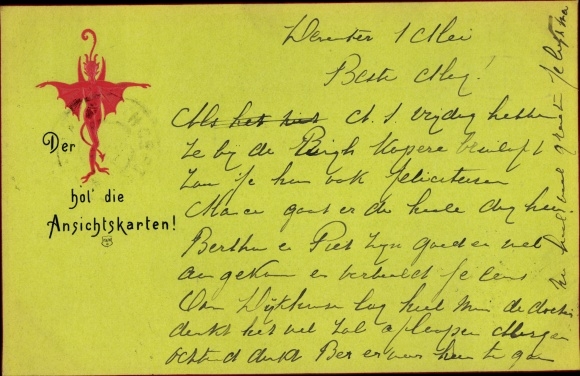 Der
hol' die
Ansichtskarten!
Deventer 1 Mei
Beste Mej!
Als het niet A. S. vrijdag hebben
ze bij de Bergh Kopere bruiloft
zou je hun ook feliciteeren
Marie gaat er de heele dag heen
Bertha en Piet zijn goed en wel
aangekomen en verbeeldt je eens
Oom lag heel min de dochter
denkt het wel zal afloopen Morgen
ochtend denkt Ber er weer heen te gaan